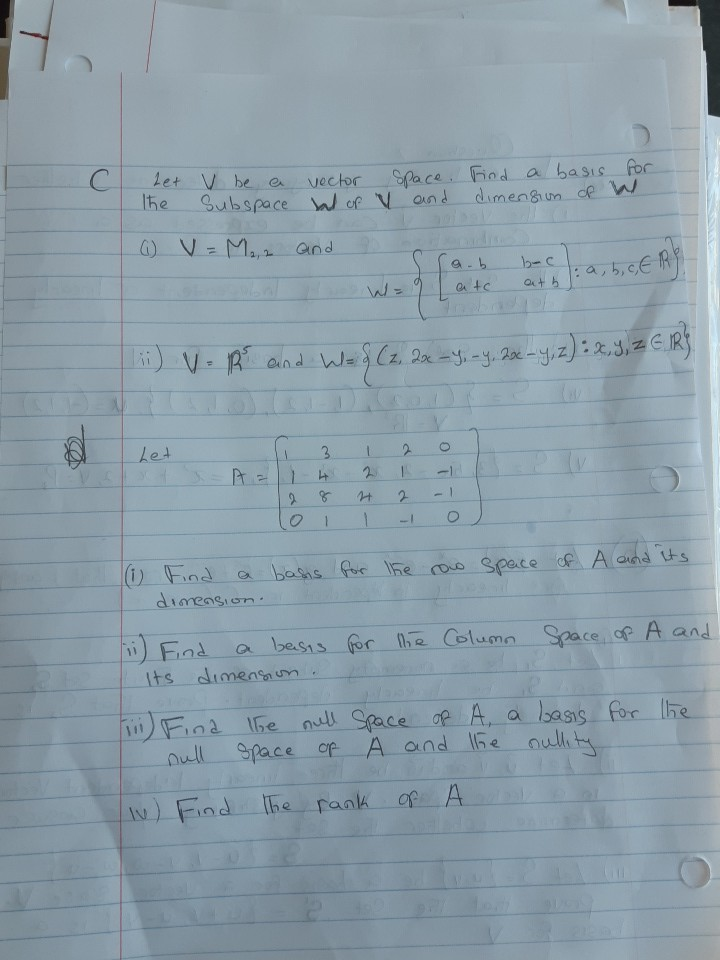 C Let V be a vector Space. Find a basis for
the Subspace W of V and dimension of W
(i) V = M2,2 and
W = { [ a-b b-c
a+c a+b ] : a, b, c, ∈ ℝ}
ii) V = ℝ⁵ and W = { (z, 2x -y, -y, 2x -y, z) : x, y, z ∈ ℝ}
d Let
1 3 1 2 0
A = 1 4 2 1 -1
2 8 4 2 -1
0 1 1 -1 0
(i) Find a basis for the row space of A and its
dimension.
ii) Find a basis for the Column Space of A and
Its dimension.
iii) Find the null Space of A, a basis for the
null space of A and the nullity
iv) Find the rank of A